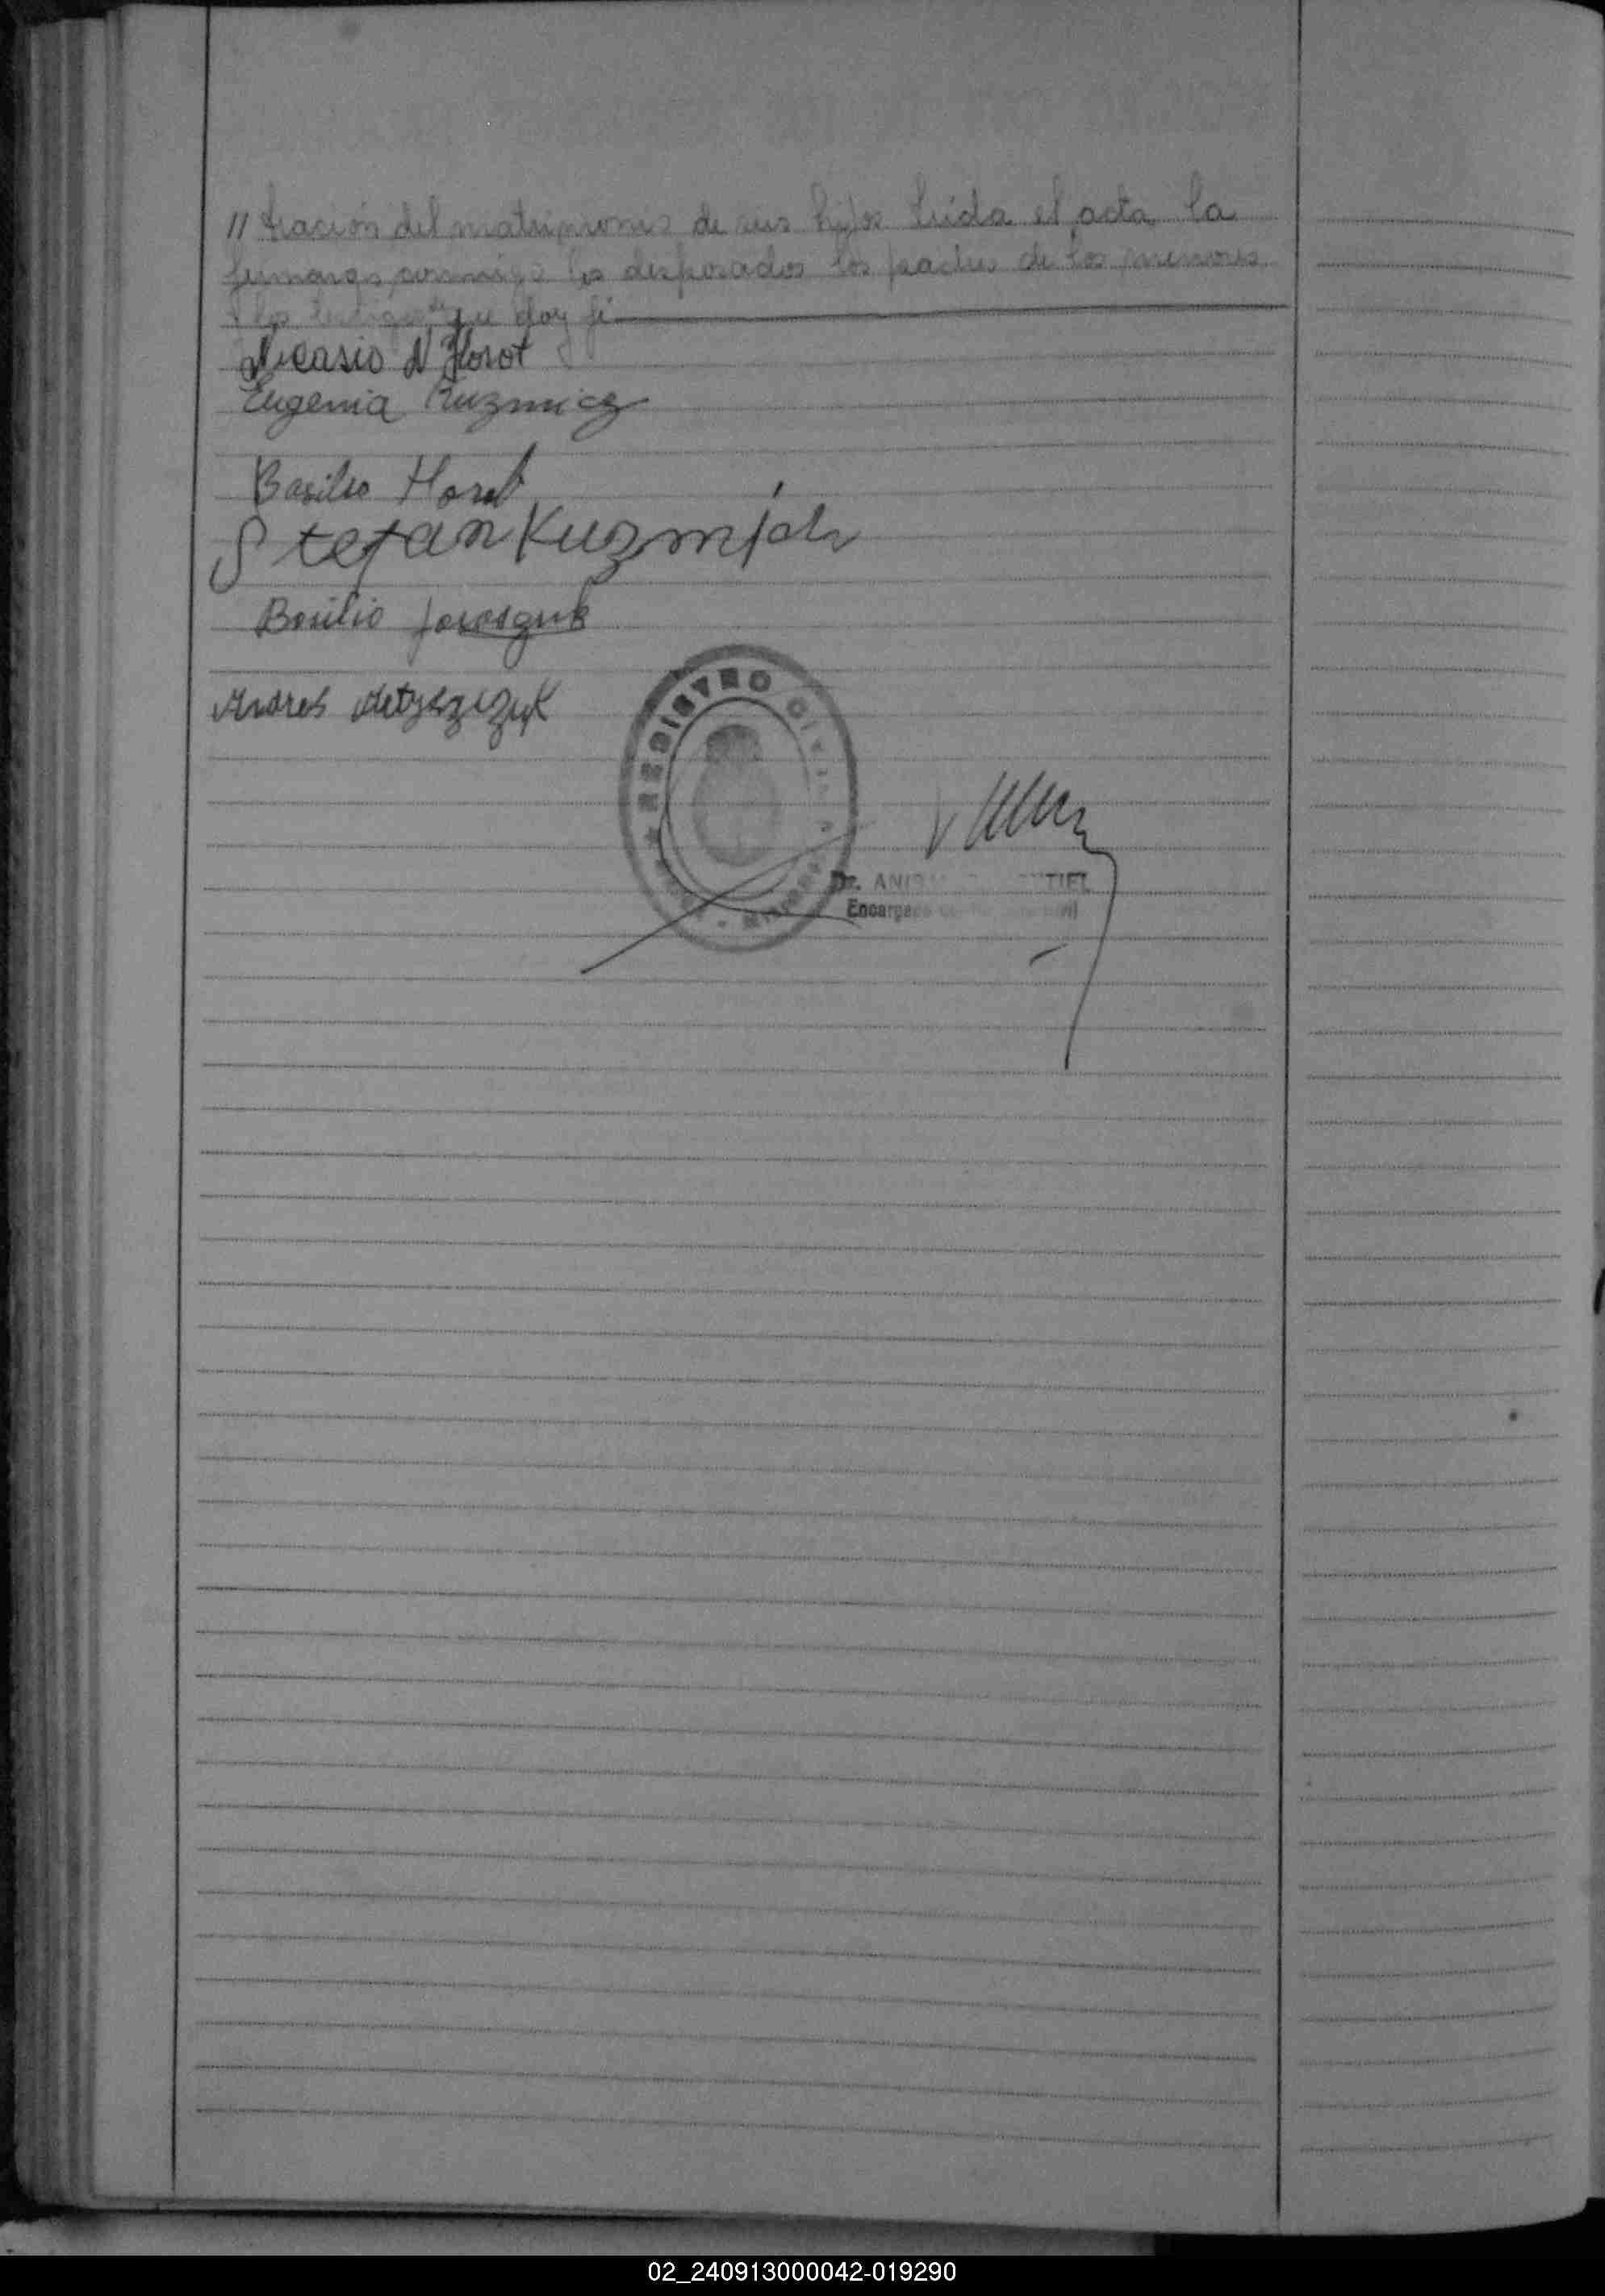 // tración del matrimonio de sus hijos Leída el acta la
firmaron conmigo los desposados los padres de los menores
y los testigos de que doy fé
Nicasio N Horot
Eugenia Kuzmicz
Basilio Horot
Stefan Kuzmich
Basilio
Andres
REGISTRO CIVIL
Dr.
02_240913000042-019290